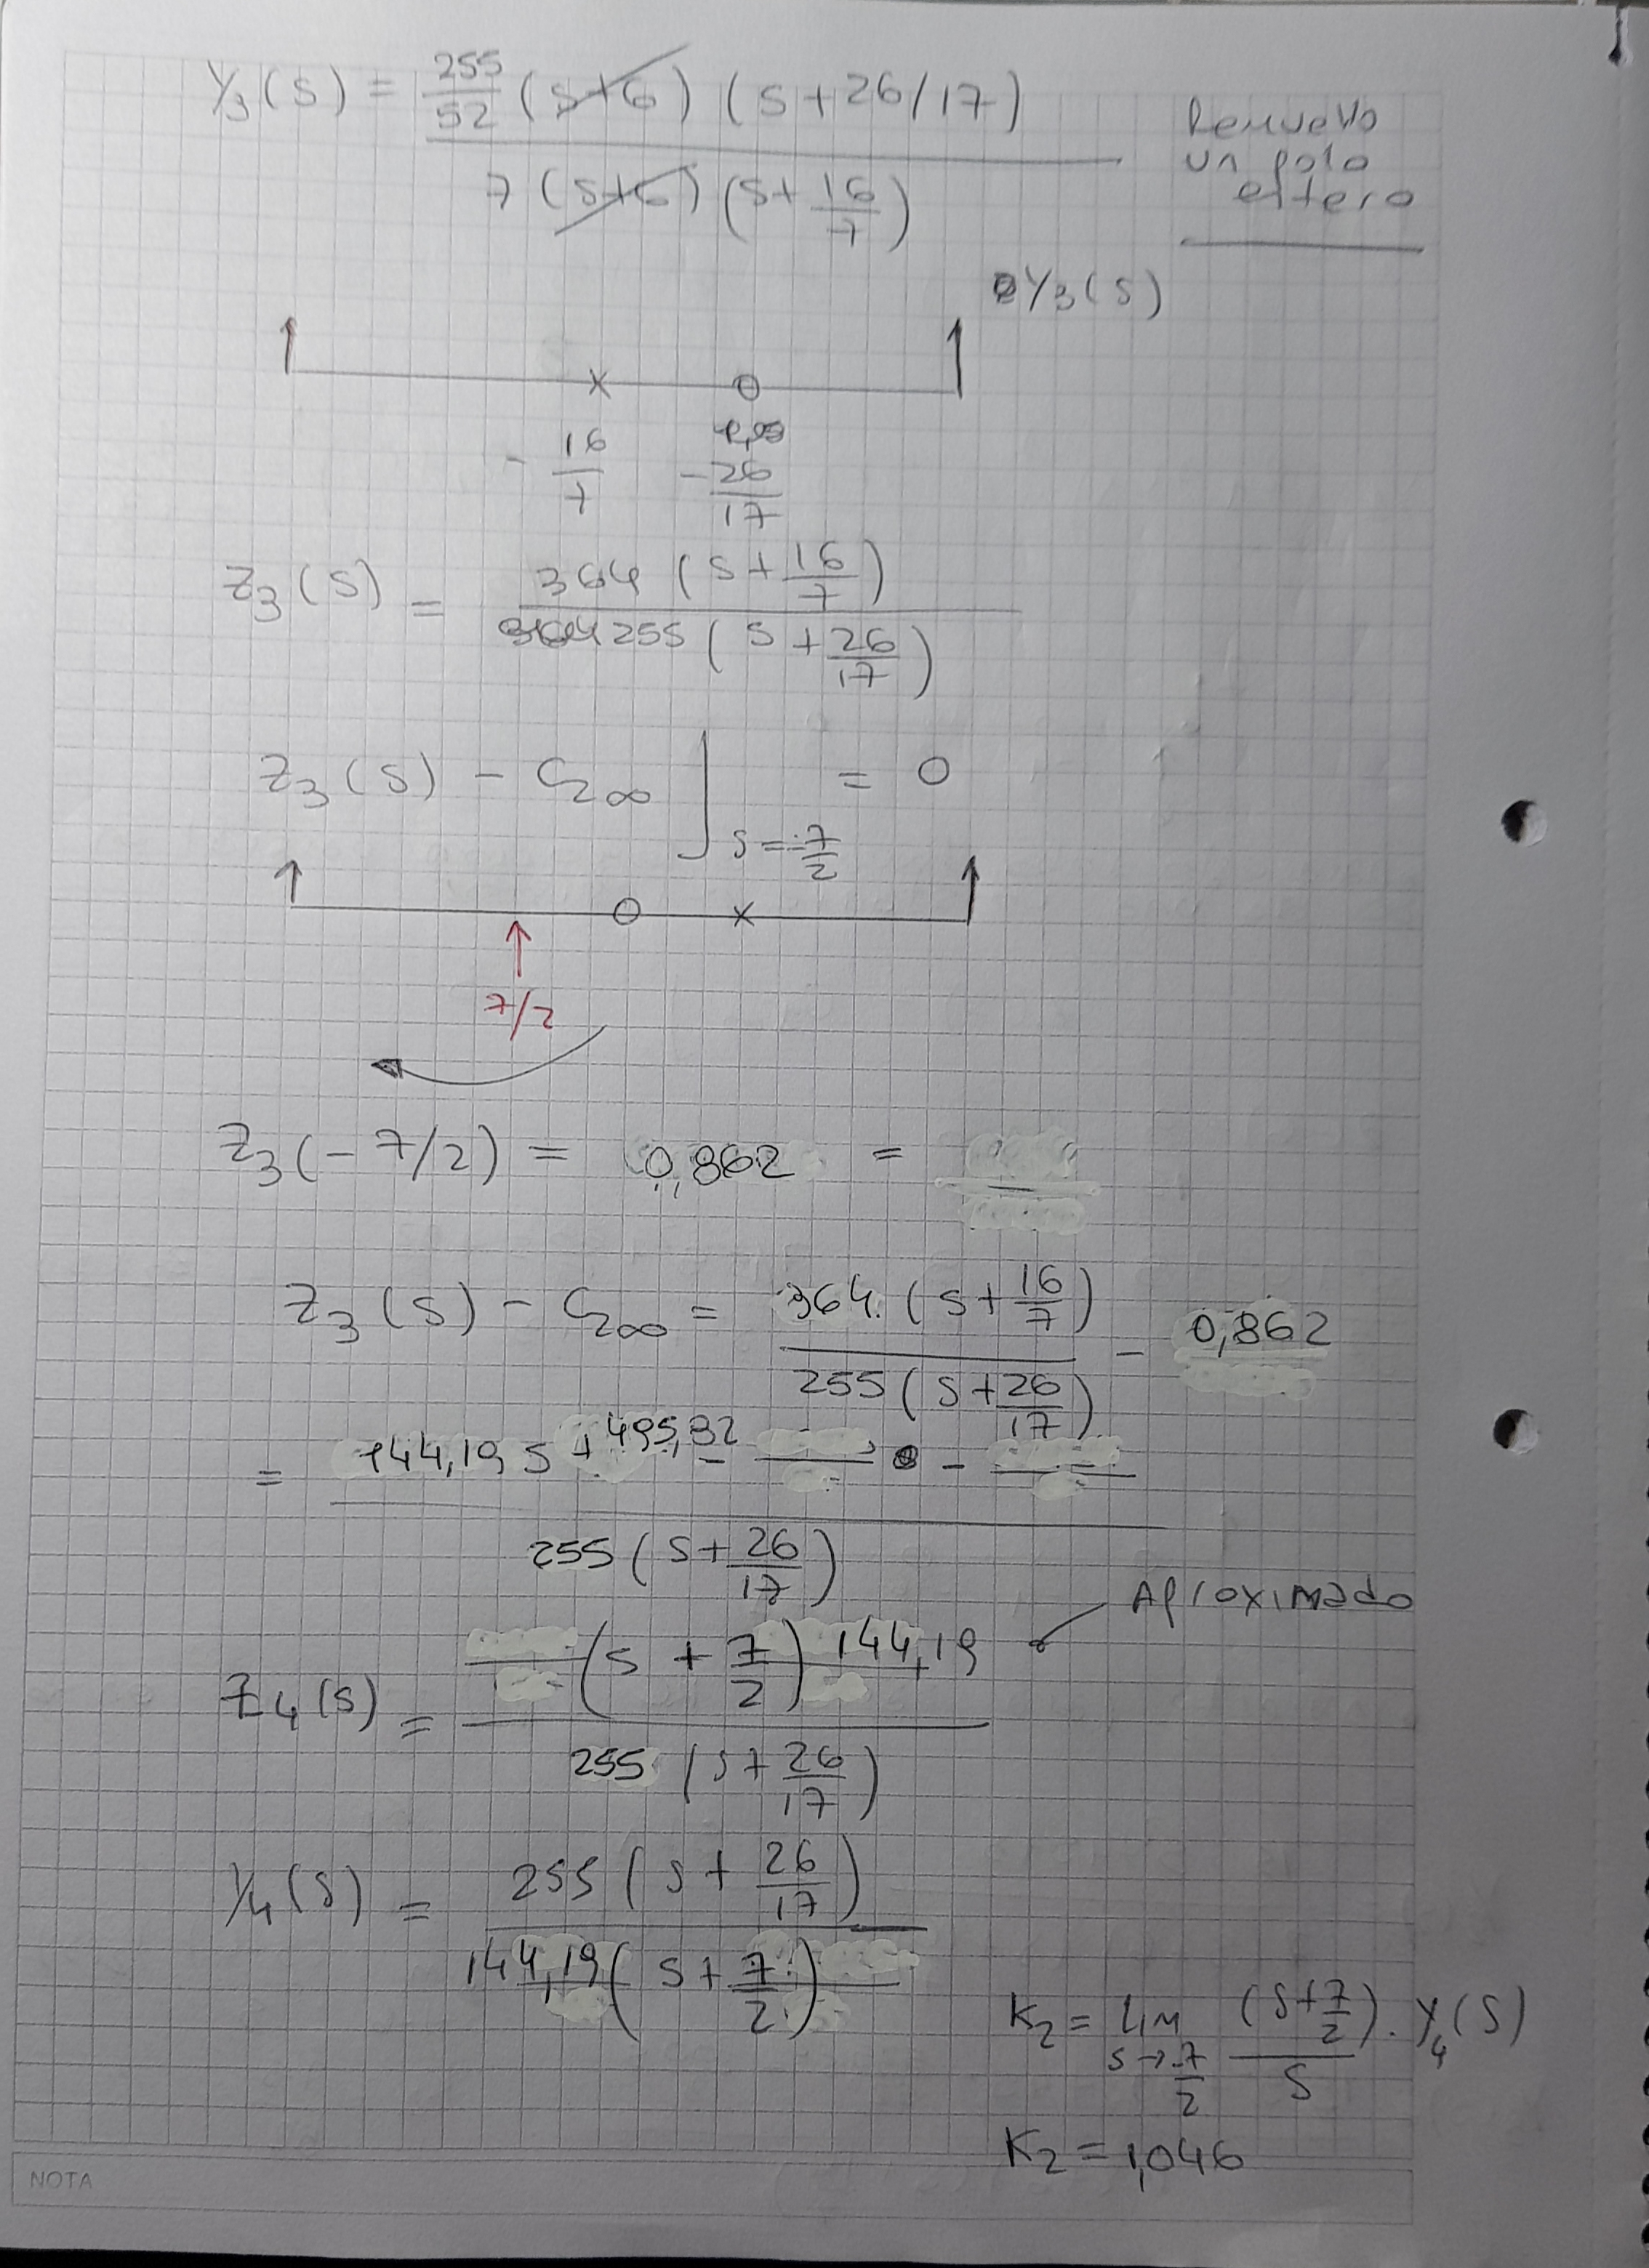 Y₃(s) = 255/52 (s+6) (s + 26/17) / 7 (s+6) (s + 16/7)
Remuevo
un polo
entero
Y₃(s)
x o
- 16/7 - 26/17
Z₃(s) = 364 (s + 16/7) / 255 (s + 26/17)
Z₃(s) - C₂∞ ⌋ s = -7/2 = 0
o x
7/2
Z₃(-7/2) = 0,862 =
Z₃(s) - C₂∞ = 364. (s + 16/7) / 255 (s + 26/17) - 0,862
= 144,19 s + 495,82 - - / 255 (s + 26/17)
Aproximado
Z₄(s) = (s + 7/2) 144,19 / 255 (s + 26/17)
Y₄(s) = 255 (s + 26/17) / 144,19 (s + 7/2)
K₂ = Lim s→-7/2 (s + 7/2)/s . Y₄(s)
K₂ = 1,046
NOTA